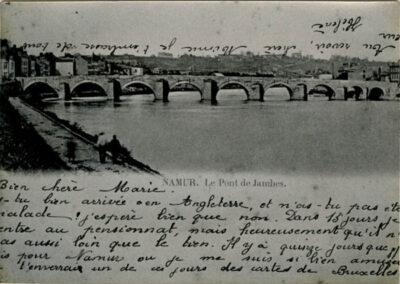 Bien chère Marie.
NAMUR. Le Pont de Jambes.
s-tu bien arrivée en Angleterre, et n'as-tu pas été
malade j'espère bien que non. Dans 15 jours je
entre au pensionnat, mais heureusement qu'il n'
as aussi loin que le tien. Il y a quinze jours que j
is pour Namur ou je me suis si bien amusée
t'enverrai un de ces jours des cartes de Bruxelles
Au revoir, chère Marie je t'embrasse de tout
cœur Hélène